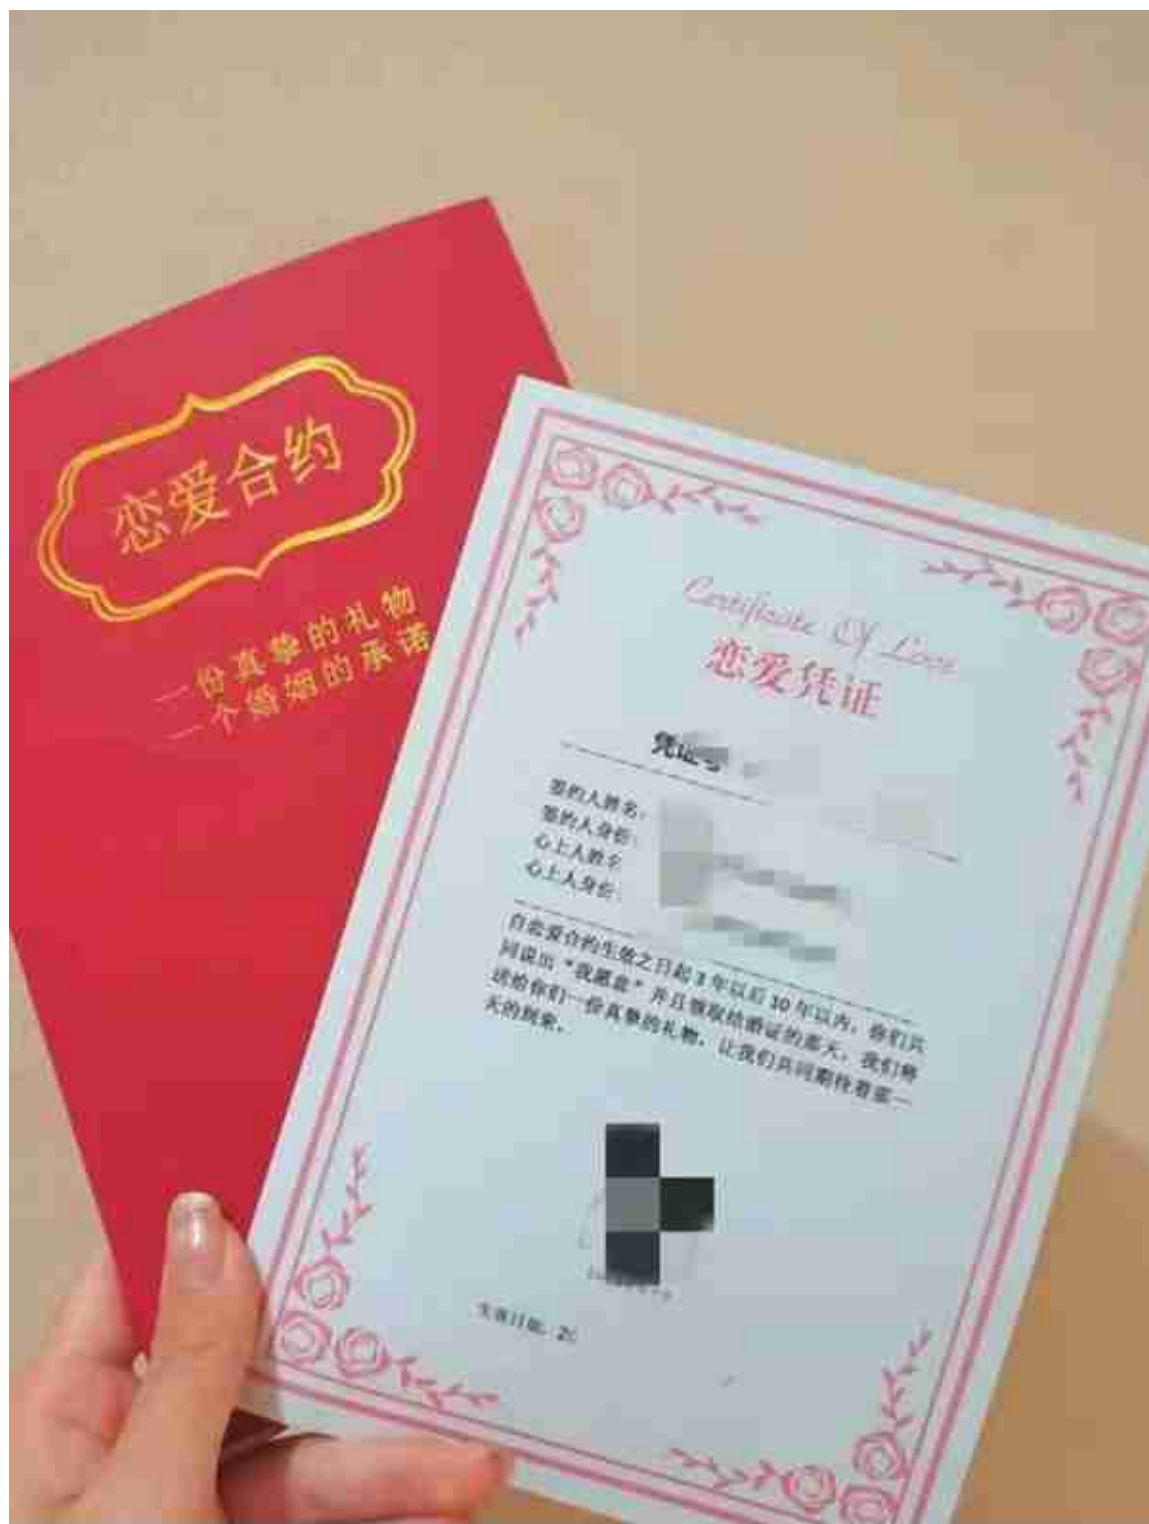 恋爱合约
一份真挚的礼物
一个婚姻的承诺
Certificate Of Love
恋爱凭证
凭证号
签约人姓名:
签约人身份:
心上人姓名
心上人身份:
自恋爱合约生效之日起3年以后10年以内,你们共
同说出“我愿意”并且领取结婚证的那天,我们将
送给你们一份真挚的礼物,让我们共同期待着那一
天的到来。
生效日期:20